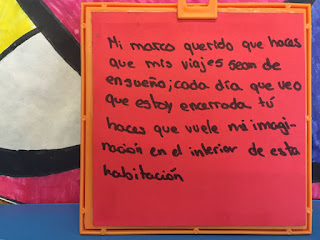 Mi marco querido que haces
que mis viajes sean de
ensueño; cada día que veo
que estoy encerrada tú
haces que vuele mi imagi-
nación en el interior de esta
habitación